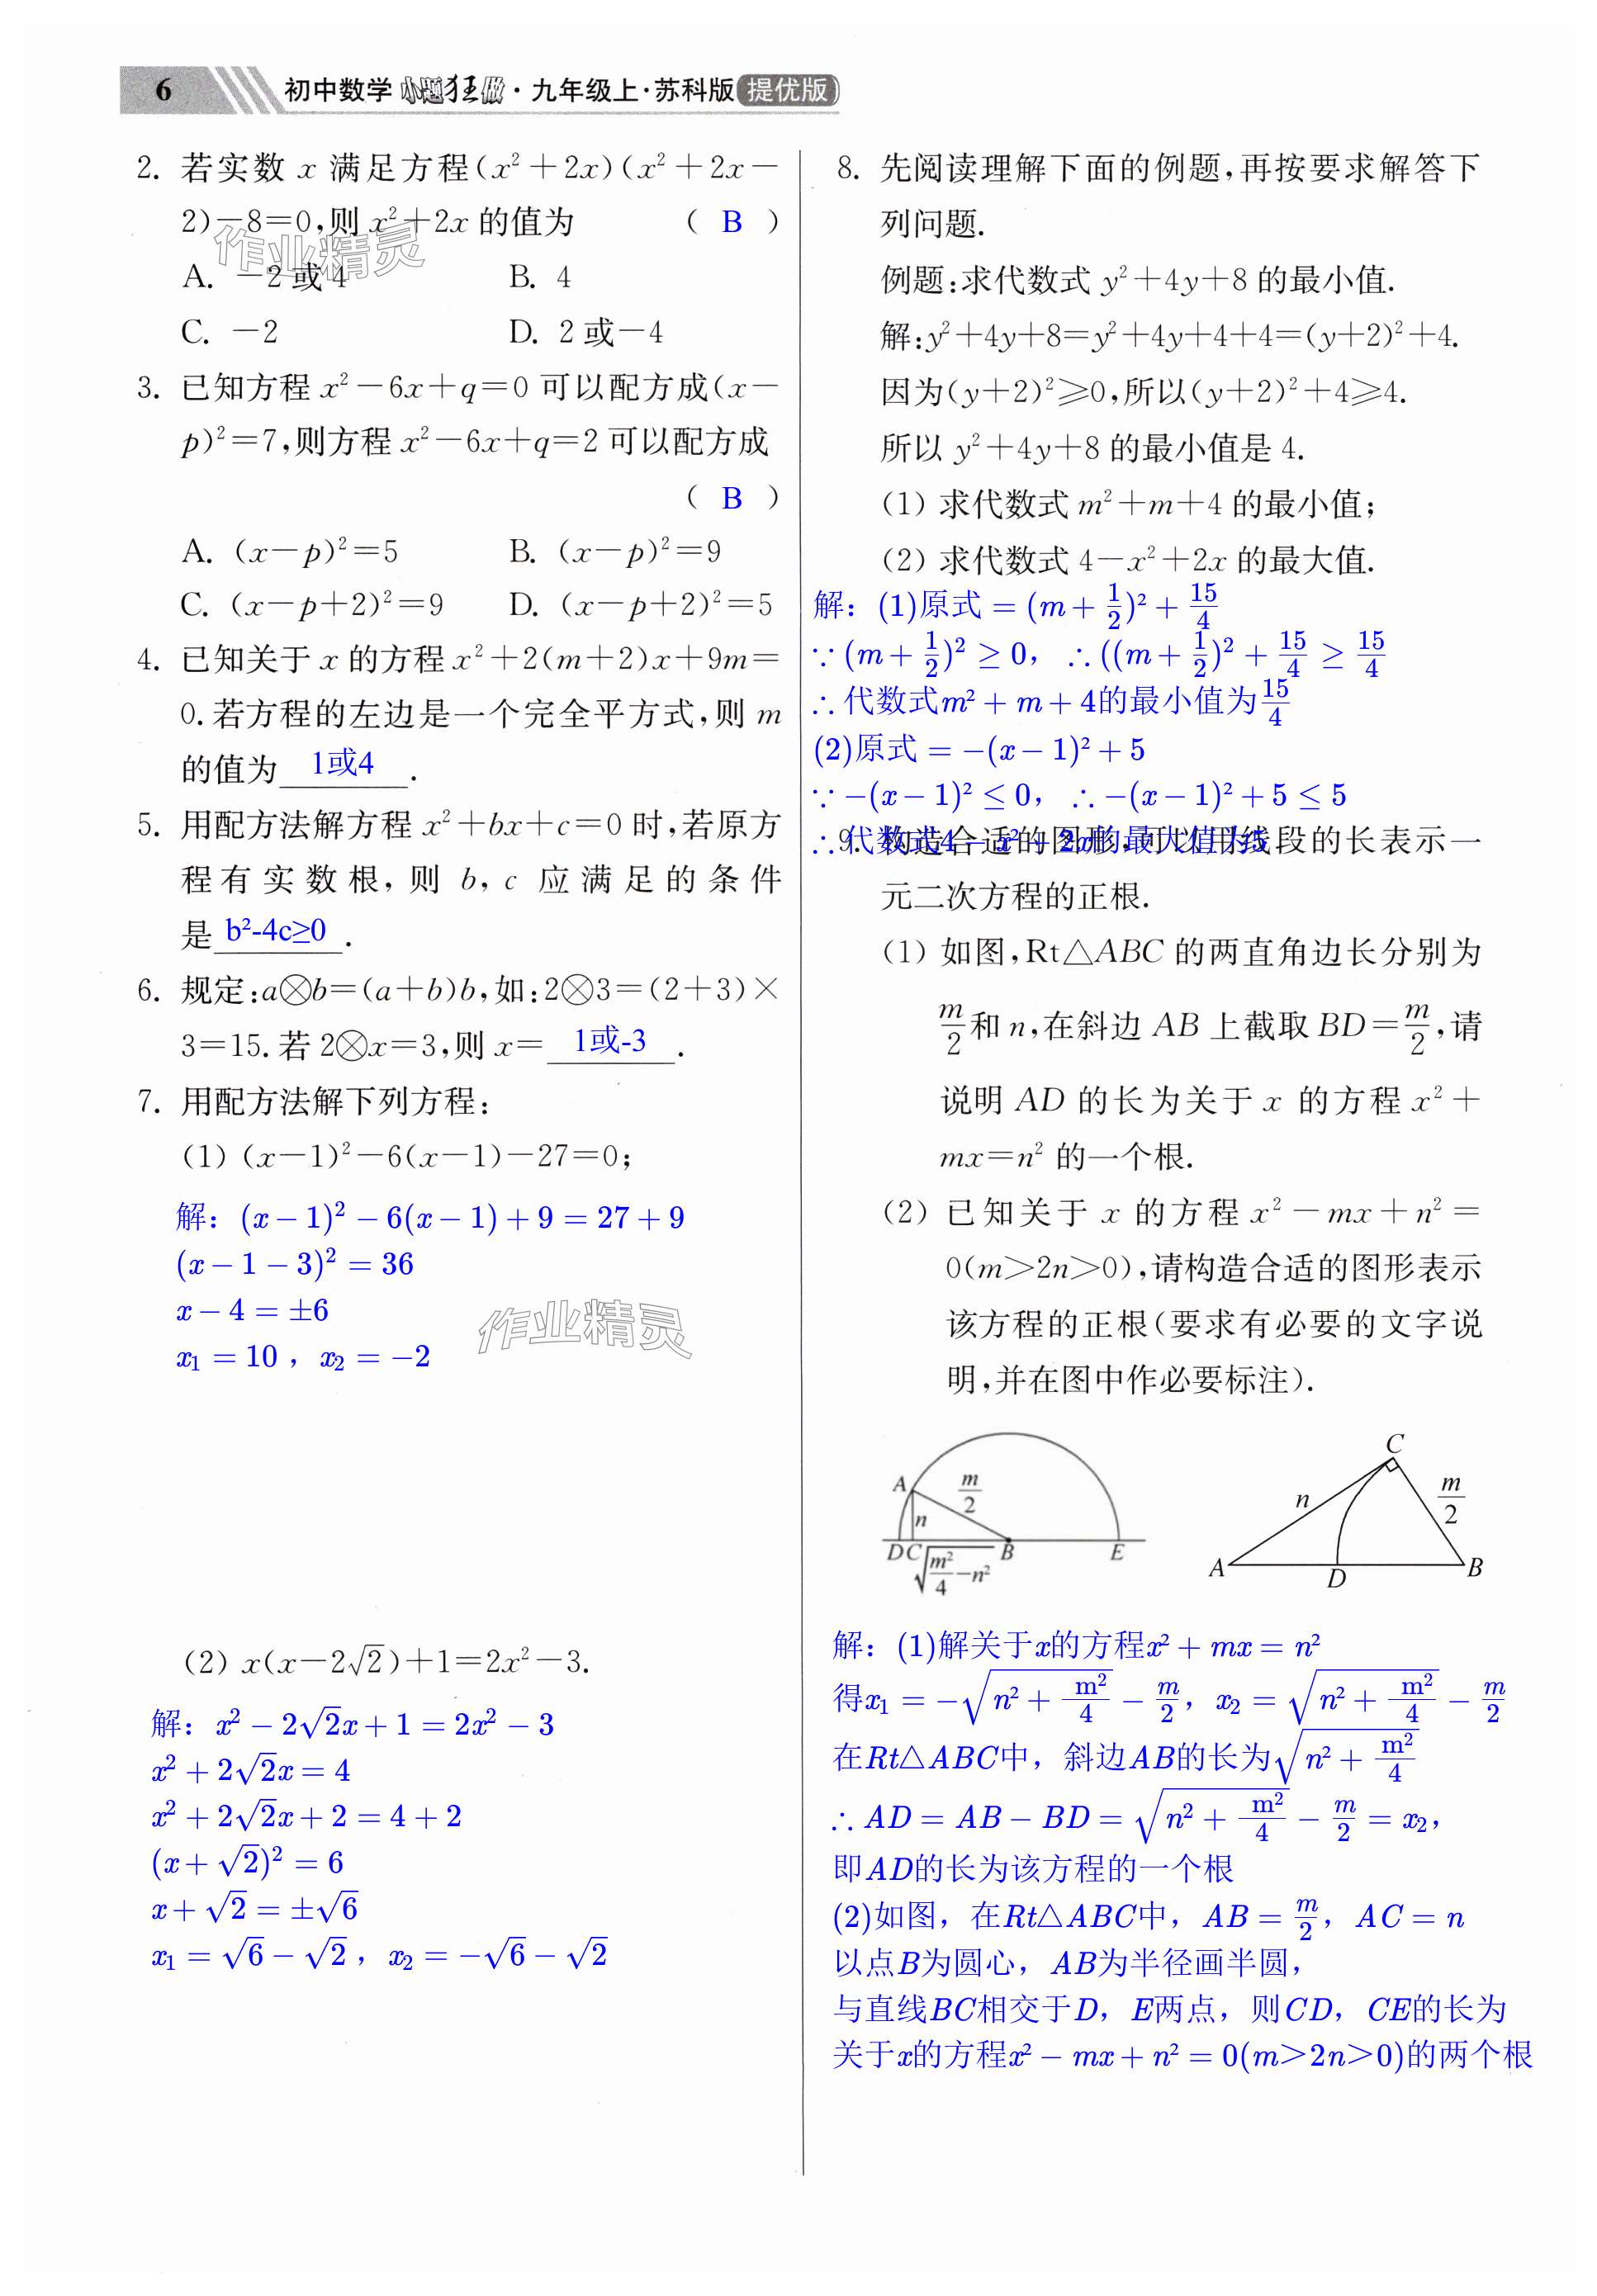 6 初中数学 小题狂做·九年级上·苏科版 提优版
2. 若实数 x 满足方程(x²+2x)(x²+2x-
2)-8=0,则 x²+2x 的值为 ( B )
A. -2或4 B. 4
C. -2 D. 2或-4
3. 已知方程 x²-6x+q=0 可以配方成(x-
p)²=7,则方程 x²-6x+q=2 可以配方成
( B )
A. (x-p)²=5 B. (x-p)²=9
C. (x-p+2)²=9 D. (x-p+2)²=5
4. 已知关于 x 的方程 x²+2(m+2)x+9m=
0.若方程的左边是一个完全平方式,则 m
的值为 1或4 .
5. 用配方法解方程 x²+bx+c=0 时,若原方
程有实数根,则 b,c 应满足的条件
是 b²-4c≥0 .
6. 规定:a⊗b=(a+b)b,如:2⊗3=(2+3)×
3=15.若 2⊗x=3,则 x= 1或-3 .
7. 用配方法解下列方程:
(1) (x-1)²-6(x-1)-27=0;
解：(x-1)²-6(x-1)+9=27+9
(x-1-3)²=36
x-4=±6
x₁=10，x₂=-2
作业精灵
作业精灵
(2) x(x-2√2)+1=2x²-3.
解：x²-2√2x+1=2x²-3
x²+2√2x=4
x²+2√2x+2=4+2
(x+√2)²=6
x+√2=±√6
x₁=√6-√2，x₂=-√6-√2
8. 先阅读理解下面的例题,再按要求解答下
列问题.
例题:求代数式 y²+4y+8 的最小值.
解:y²+4y+8=y²+4y+4+4=(y+2)²+4.
因为(y+2)²≥0,所以(y+2)²+4≥4.
所以 y²+4y+8 的最小值是 4.
(1) 求代数式 m²+m+4 的最小值;
(2) 求代数式 4-x²+2x 的最大值.
解：(1)原式=(m+1/2)²+15/4
∵(m+1/2)²≥0，∴((m+1/2)²+15/4≥15/4
∴代数式m²+m+4的最小值为15/4
(2)原式=-(x-1)²+5
∵-(x-1)²≤0，∴-(x-1)²+5≤5
∴代数式4-x²+2x的最大值为5
9. 构造合适的图形,可以用线段的长表示一
元二次方程的正根.
(1) 如图,Rt△ABC 的两直角边长分别为
m/2和 n,在斜边 AB 上截取 BD=m/2,请
说明 AD 的长为关于 x 的方程 x²+
mx=n² 的一个根.
(2) 已知关于 x 的方程 x²-mx+n²=
0(m>2n>0),请构造合适的图形表示
该方程的正根(要求有必要的文字说
明,并在图中作必要标注).
A m/2 n D C B E √(m²/4-n²)
C n m/2 A D B
解：(1)解关于x的方程x²+mx=n²
得x₁=-√(n²+m²/4)-m/2，x₂=√(n²+m²/4)-m/2
在Rt△ABC中，斜边AB的长为√(n²+m²/4)
∴AD=AB-BD=√(n²+m²/4)-m/2=x₂，
即AD的长为该方程的一个根
(2)如图，在Rt△ABC中，AB=m/2，AC=n
以点B为圆心，AB为半径画半圆，
与直线BC相交于D，E两点，则CD，CE的长为
关于x的方程x²-mx+n²=0(m>2n>0)的两个根